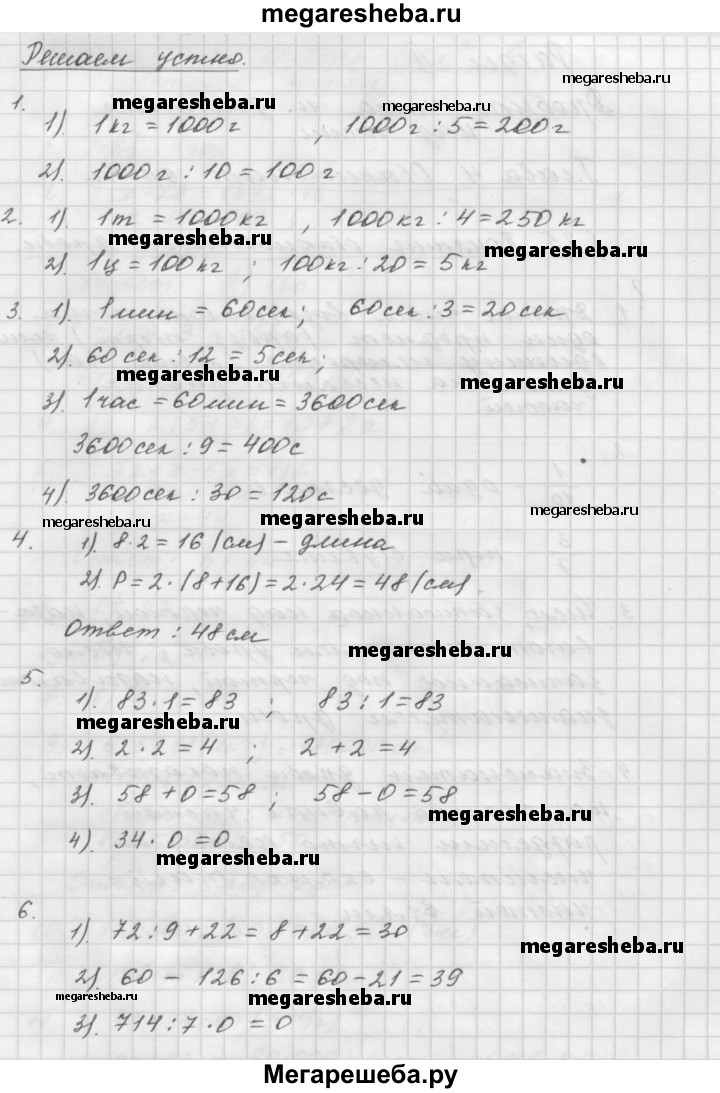 megaresheba.ru
Решаем устно.
megaresheba.ru
1. megaresheba.ru megaresheba.ru
1). 1кг = 1000г , 1000г : 5 = 200г
2). 1000г : 10 = 100г
2. 1). 1т = 1000кг , 1000кг : 4 = 250кг
megaresheba.ru megaresheba.ru
2). 1ц = 100кг ; 100кг : 20 = 5кг
3. 1). 1мин = 60сек; 60сек : 3 = 20сек
2). 60сек : 12 = 5сек;
megaresheba.ru megaresheba.ru
3). 1час = 60мин = 3600сек
3600сек : 9 = 400с
4). 3600сек : 30 = 120с
megaresheba.ru megaresheba.ru megaresheba.ru
4. 1). 8·2 = 16 (см) - длина
2). P = 2·(8+16) = 2·24 = 48 (см).
Ответ : 48см
megaresheba.ru
5.
1). 83·1 = 83 ; 83 : 1 = 83
megaresheba.ru
2). 2·2 = 4 ; 2 + 2 = 4
3). 58 + 0 = 58 ; 58 - 0 = 58
megaresheba.ru
4). 34·0 = 0
megaresheba.ru
6.
1). 72 : 9 + 22 = 8 + 22 = 30
megaresheba.ru
2). 60 - 126 : 6 = 60 - 21 = 39
megaresheba.ru megaresheba.ru
3). 714 : 7·0 = 0
Мегарешеба.ру